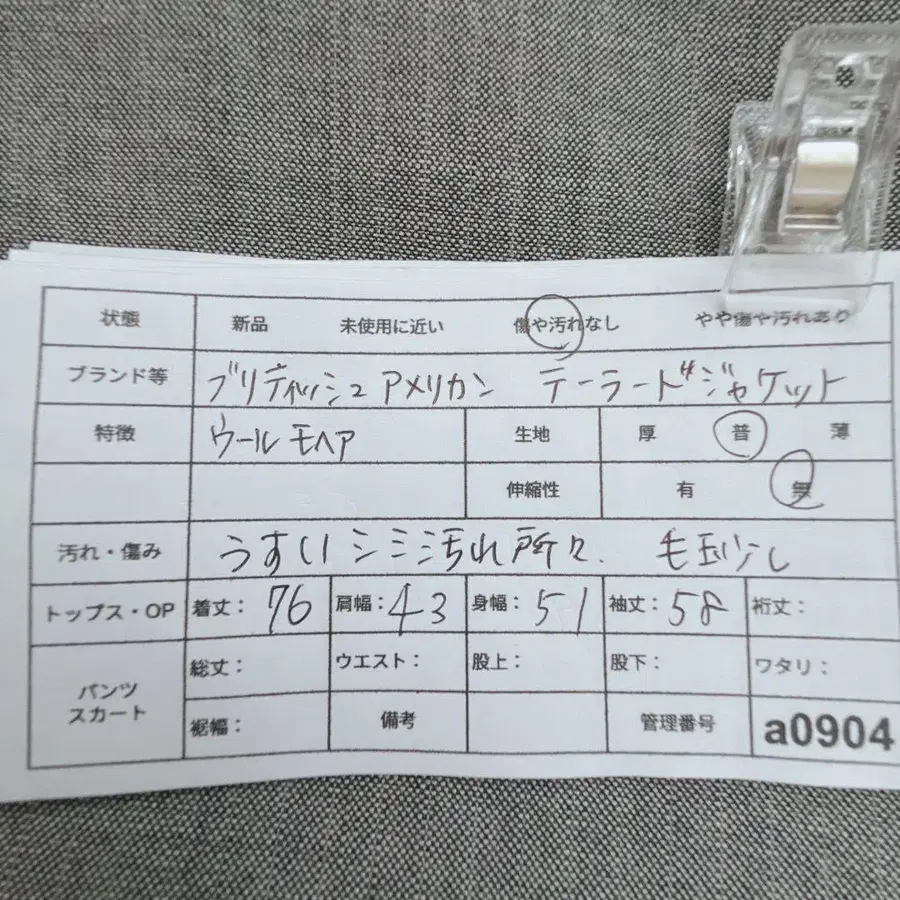 状態 新品 未使用に近い 傷や汚れなし やや傷や汚れあり
ブランド等 ブリティッシュアメリカン テーラードジャケット
特徴 ウールモヘア 生地 厚 普 薄
伸縮性 有 無
汚れ・傷み うすいシミ汚れ所々、毛玉少し
トップス・OP 着丈: 76 肩幅: 43 身幅: 51 袖丈: 58 裄丈:
パンツ スカート 総丈: ウエスト: 股上: 股下: ワタリ:
裾幅: 備考 管理番号 a0904